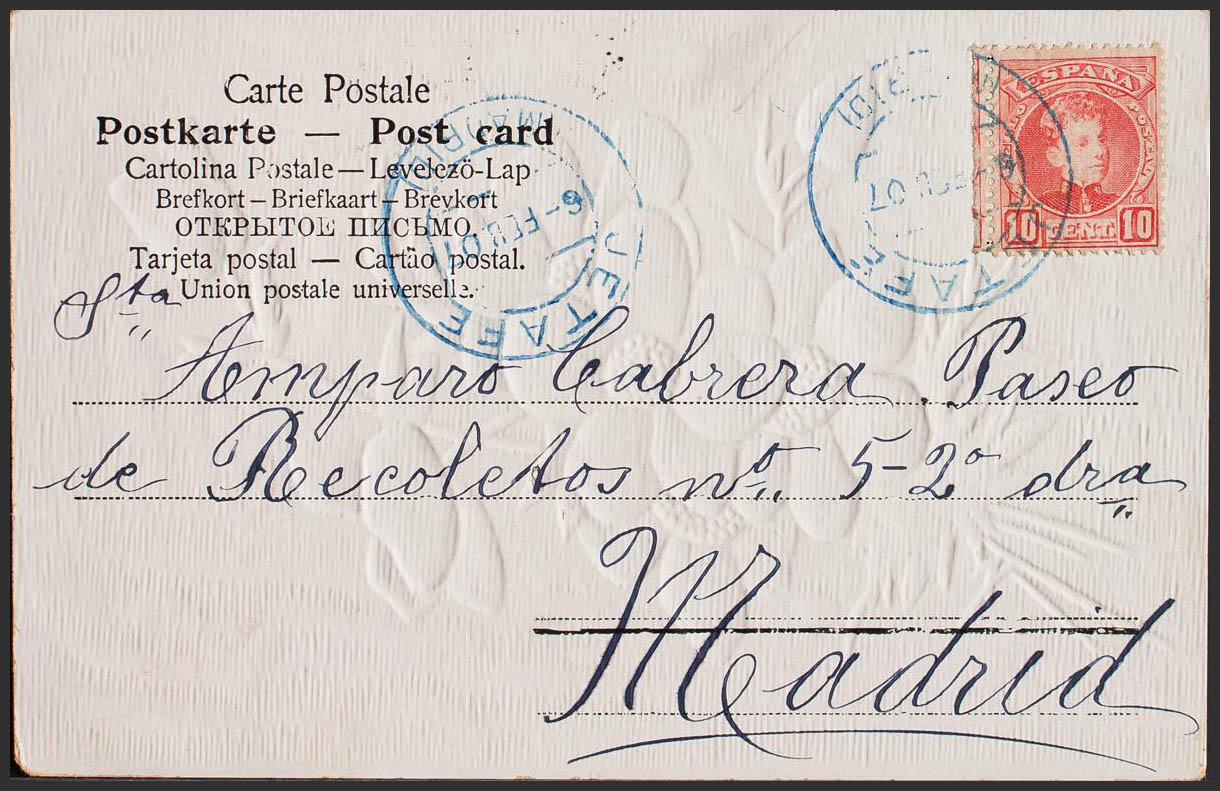 Carte Postale
Postkarte — Post card
Cartolina Postale — Levelezö-Lap
Brefkort – Briefkaart – Brevkort
ОТКРЫТОЕ ПИСЬМО.
Tarjeta postal — Cartão postal.
Union postale universelle.
ESPAÑA
10 CENT. 10
JETAFE
6-FEB 07
(MADRID)
TAFE
FEB 07
Sta
Amparo Cabrera. Paseo
de Recoletos nº 5-2º dra
Madrid